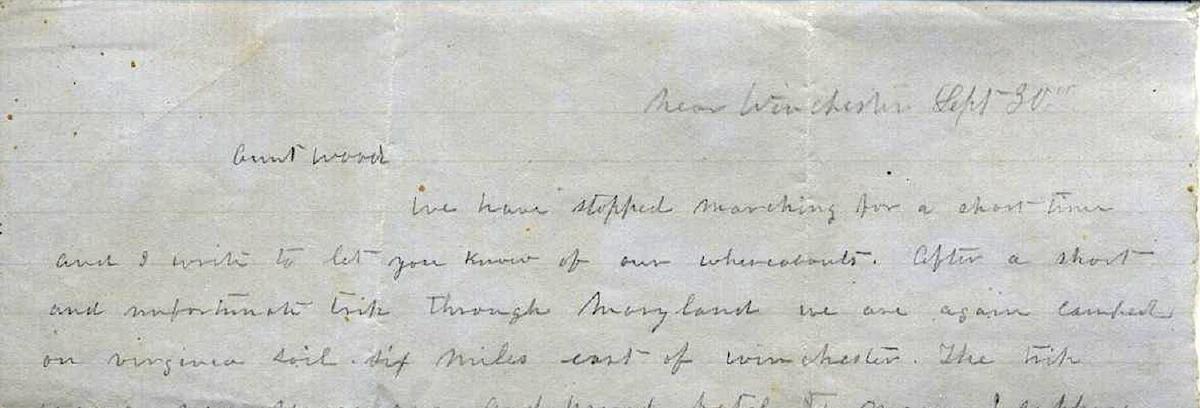 Near Winchester Sept 30th
Aunt Wood
We have stopped marching for a short time
and I write to let you know of our whereabouts. After a short
and unfortunate trip through Maryland we are again camped
on virginia soil six miles east of winchester. The trip
and